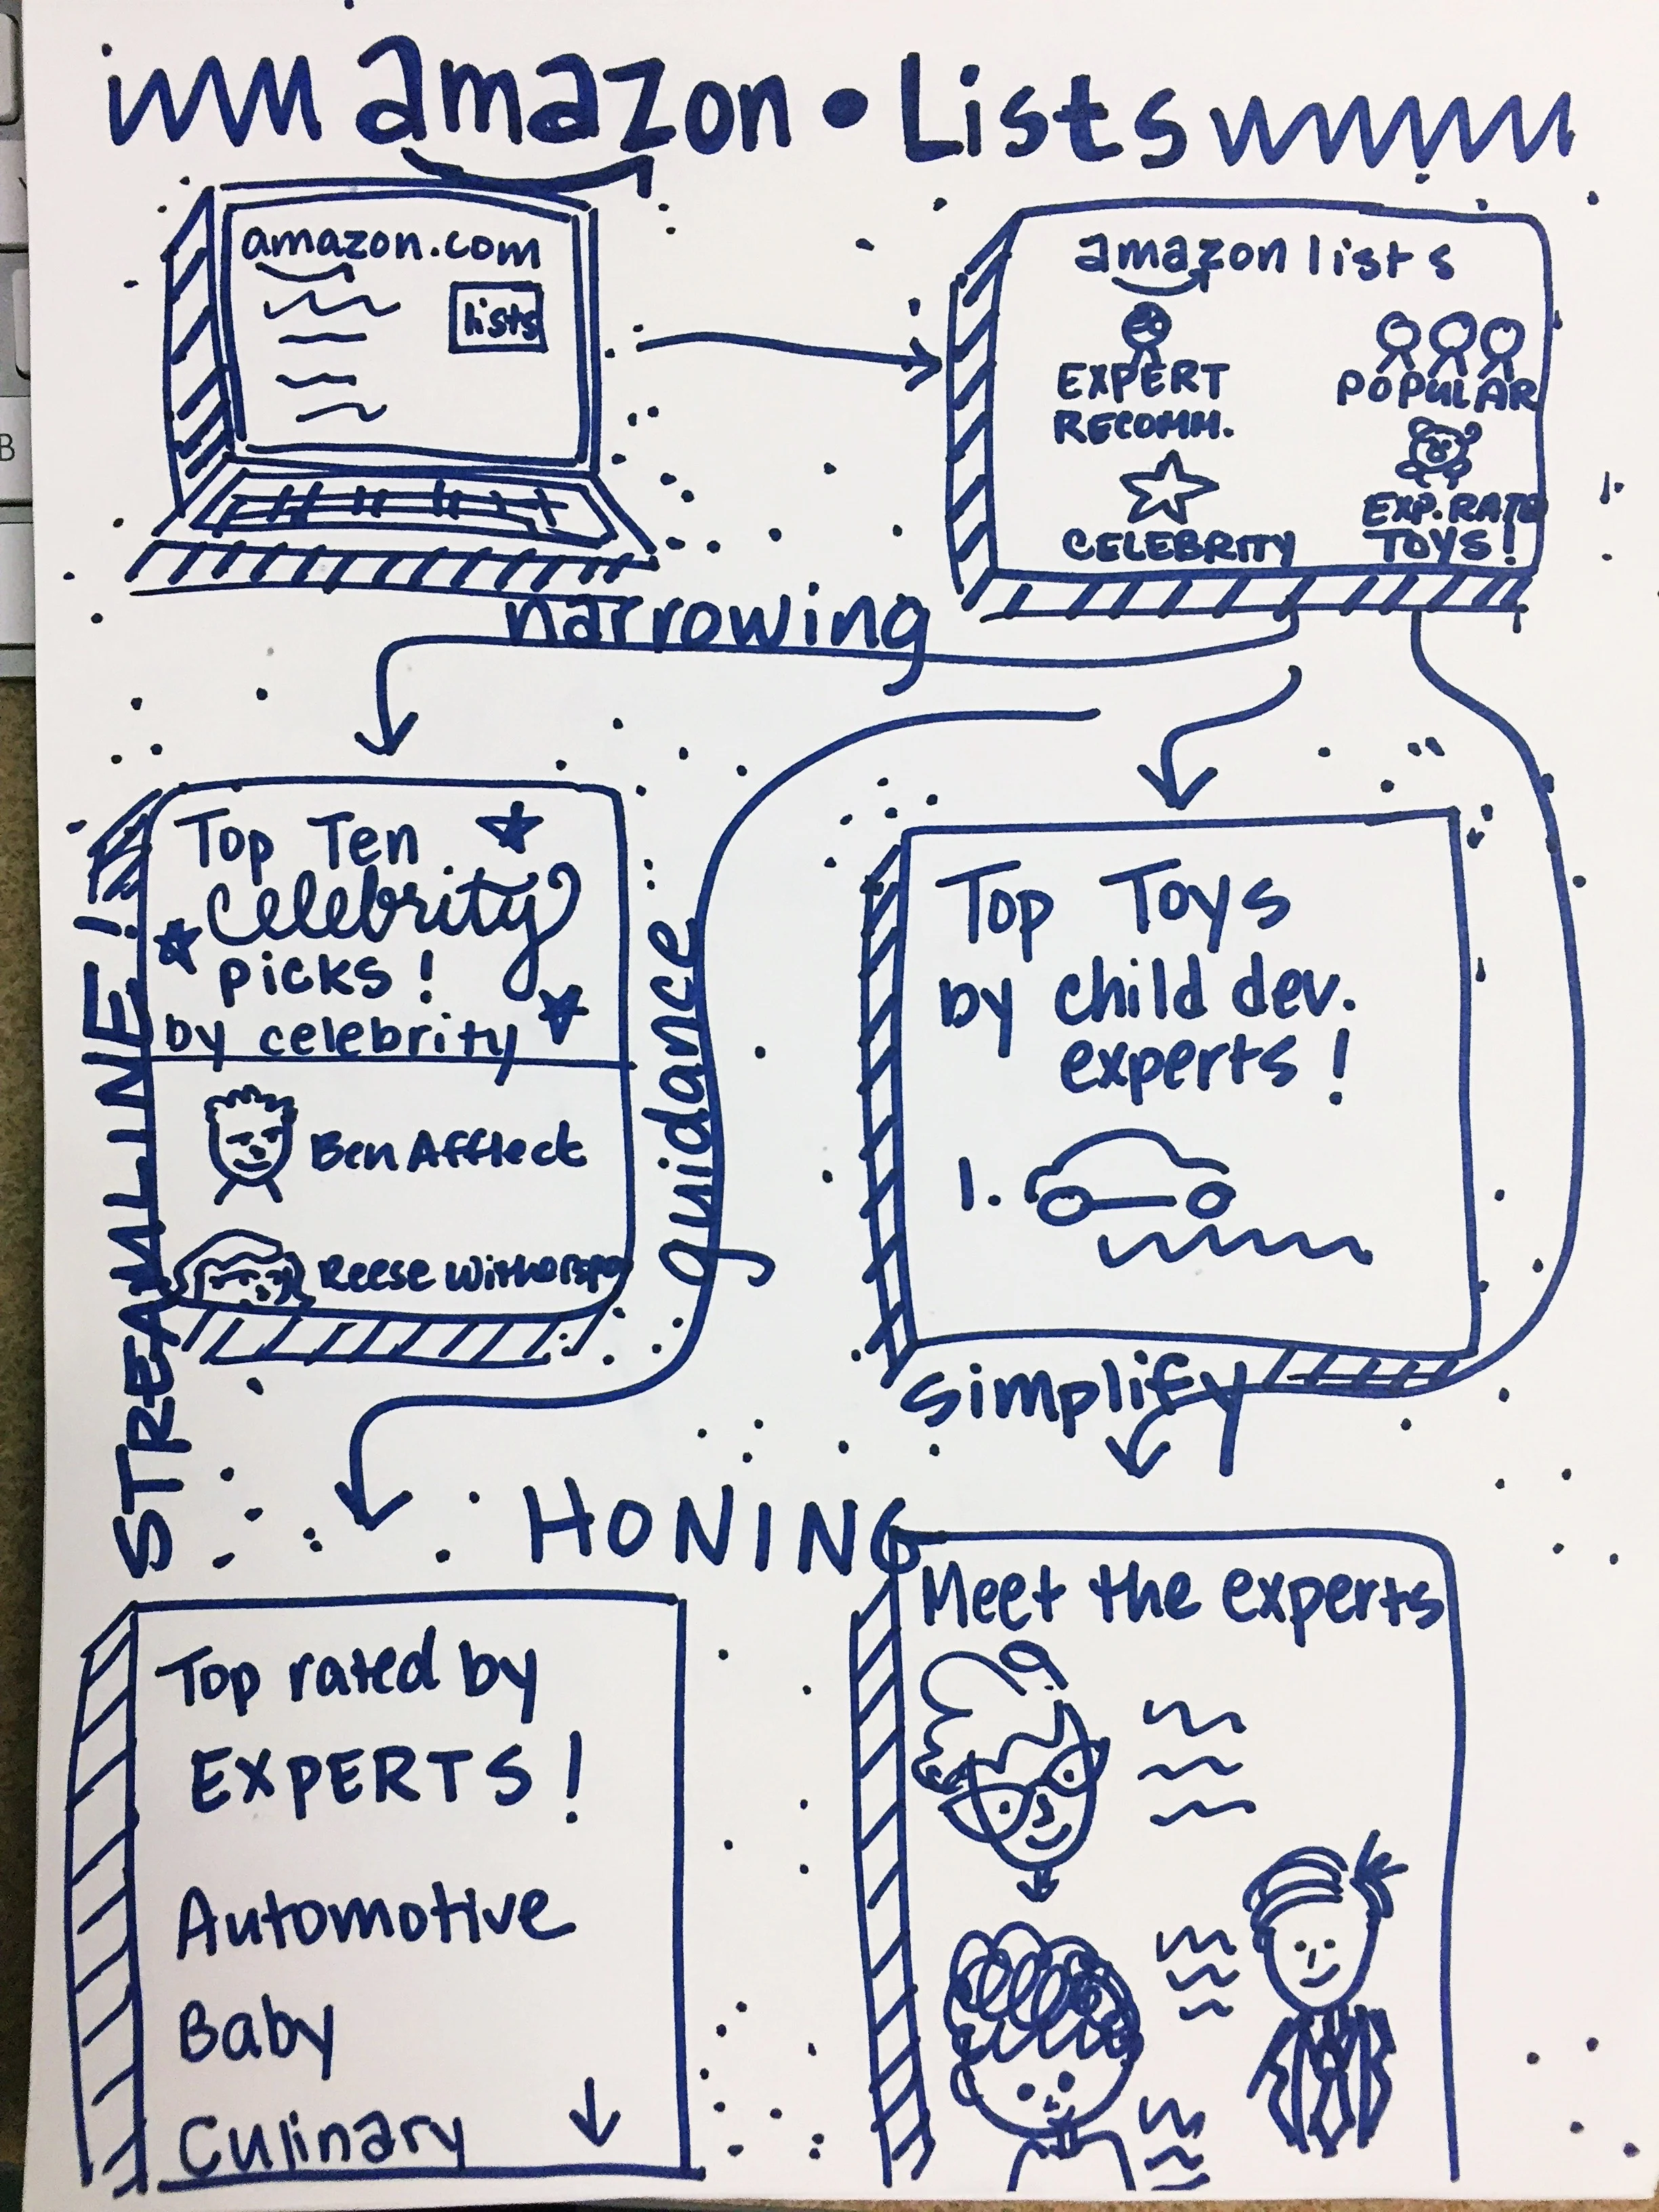 amazon • Lists
amazon.com
lists
amazon lists
EXPERT
RECOMM.
POPULAR
CELEBRITY
EXP. RATED
TOYS!
narrowing
Top Ten
celebrity
picks!
by celebrity
Ben Affleck
Reese Witherspo
STREAMLINE!
guidance
Top Toys
by child dev.
experts!
1.
simplify
HONING
Top rated by
EXPERTS!
Automotive
Baby
Culinary
Meet the experts
B